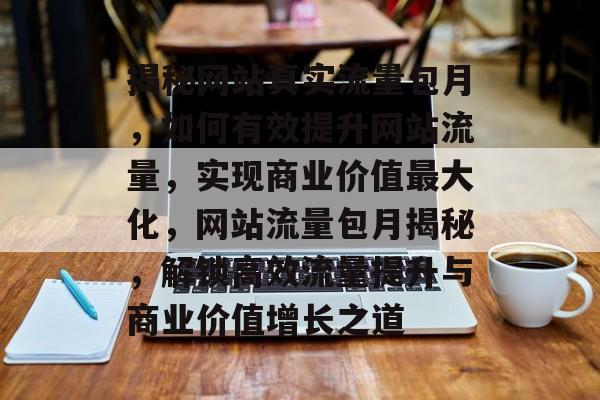 揭秘网站真实流量包月
，如何有效提升网站流
量，实现商业价值最大
化，网站流量包月揭秘
，解锁高效流量提升与
商业价值增长之道